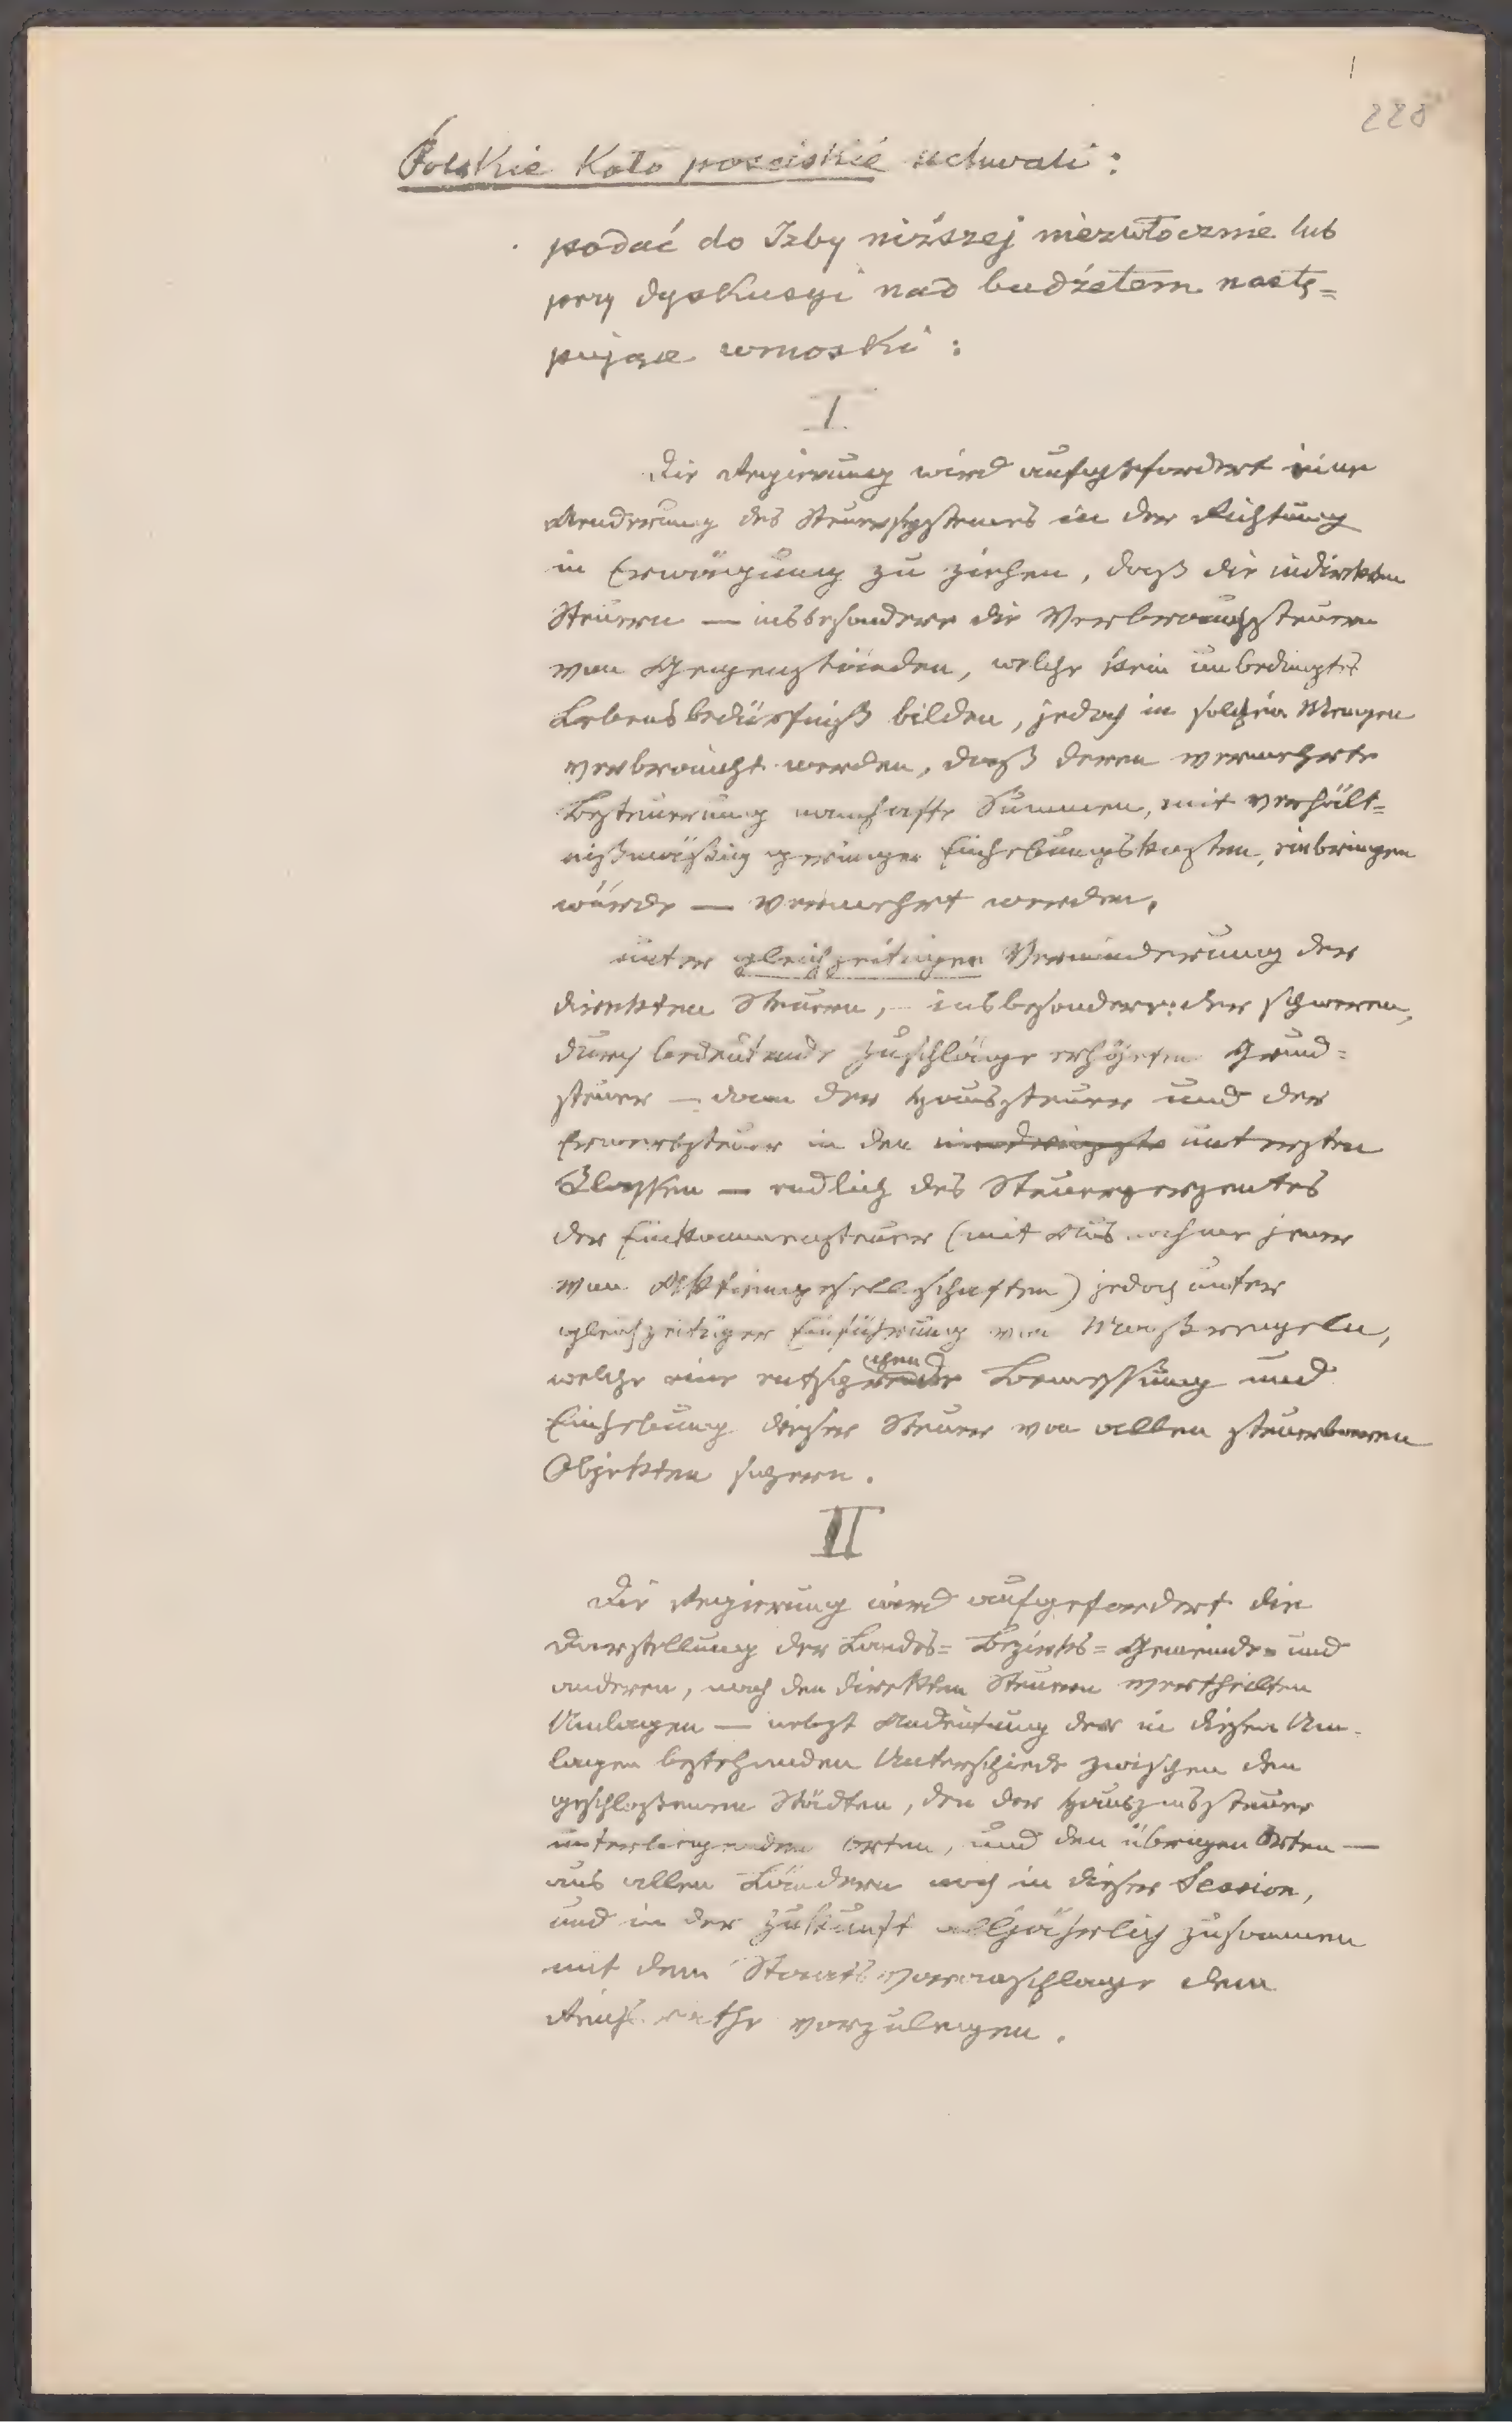 1
228
Polskie Koło poselskie uchwali:
podać do Izby niższej niezwłocznie lub
przy dyskusyi nad budżetem nastę=
pujące wnioski:
I.
Die Regierung wird aufgefordert eine
Aenderung des Steuersystemes in der Richtung
in Erwägung zu ziehen, daß die indirekten
Steuern — insbesondere die Verbrauchssteuern
von Gegenständen, welche kein unbedingtes
Lebensbedürfniß bilden, jedoch in solchen Mengen
verbraucht werden, daß deren vermehrte
Besteuerung namhafte Summen, mit verhält=
nißmäßig geringen Einhebungskosten, einbringen
würde — vermehrt werden,
unter gleichzeitiger Verminderung der
direkten Steuern, — insbesondere: der schweren,
durch bedeutende Zuschläge erhöhten Grund=
steuer — dann der Haussteuer und der
Erwerbsteuer in den untersten
Klassen — endlich des Steuerperzentes
der Einkommensteuer (mit Ausnahme jener
von Aktiengesellschaften) jedoch unter
gleichzeitiger Einführung von Maßregeln,
welche eine Bemessung und
Einhebung dieser Steuer von allen steuerbaren
Objekten sichern.
II
Die Regierung wird aufgefordert die
Darstellung der Landes= Bezirks= Gemeinde= und
anderen, nach den direkten Steuern vertheilten
Umlagen — nebst Andeutung der in diesen Um=
lagen bestehenden Unterschiede zwischen den
geschlossenen Städten, den der Hauszinssteuer
unterliegenden Orten, und den übrigen Orten —
aus allen Ländern noch in dieser Session,
und in der Zukunft alljährlich zusammen
mit dem Staatsvoranschlage dem
Reichsrathe vorzulegen.